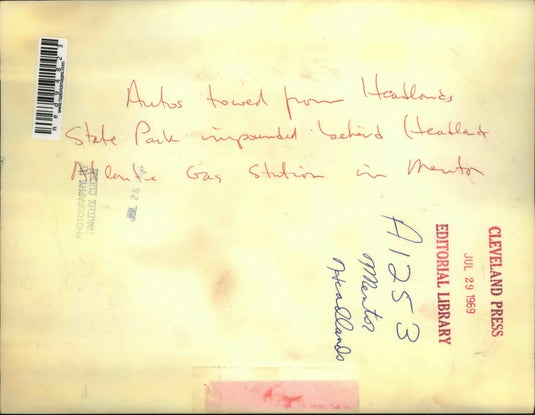 Autos towed from Headlands
State Park impounded behind Headland
Atlantic Gas Station in Mentor
A1253
Mentor
Headlands
CLEVELAND PRESS
JUL 29 1969
EDITORIAL LIBRARY